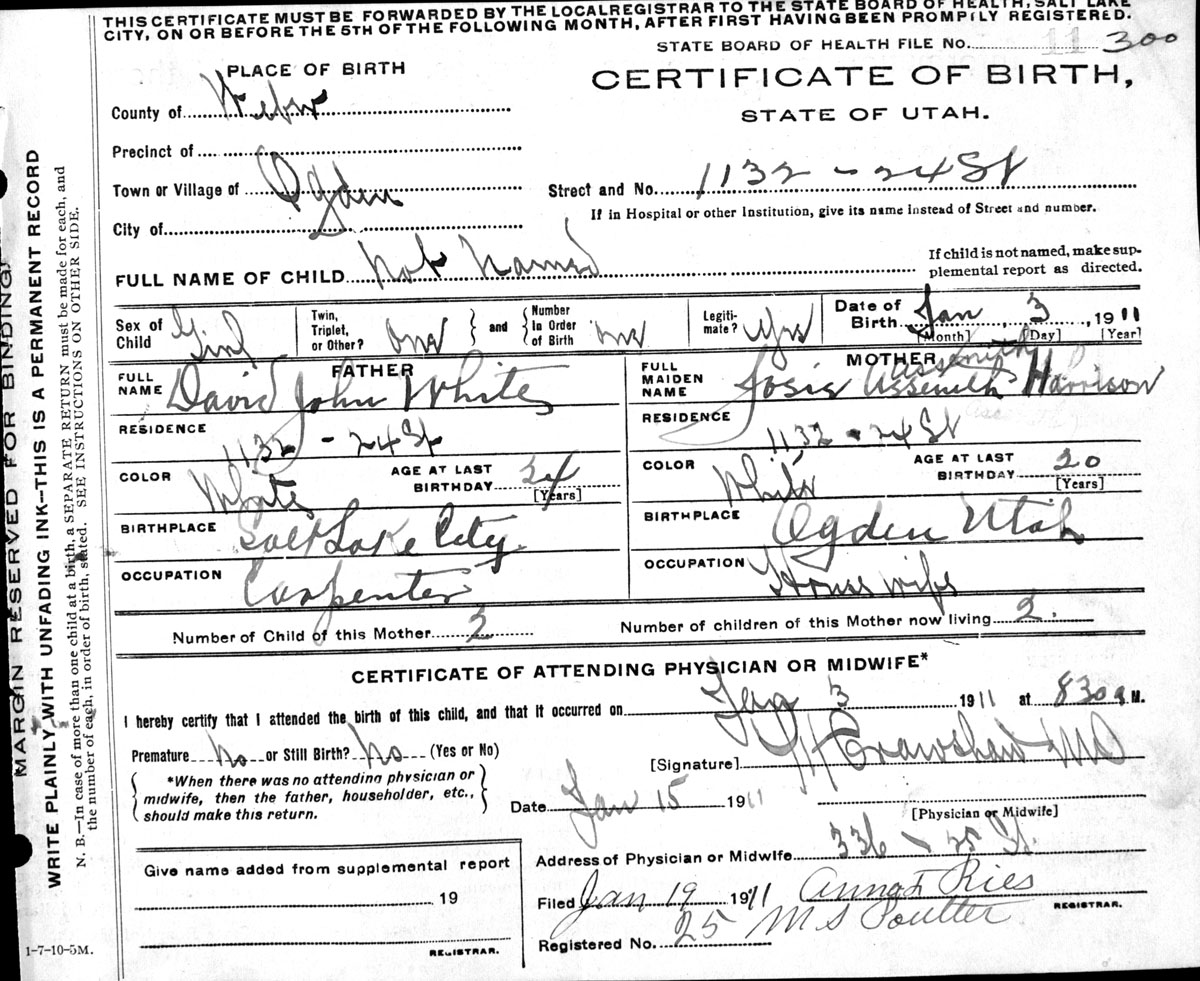 THIS CERTIFICATE MUST BE FORWARDED BY THE LOCAL REGISTRAR TO THE STATE BOARD OF HEALTH, SALT LAKE
CITY, ON OR BEFORE THE 5TH OF THE FOLLOWING MONTH, AFTER FIRST HAVING BEEN PROMPTLY REGISTERED.
STATE BOARD OF HEALTH FILE No. 11 300
PLACE OF BIRTH
CERTIFICATE OF BIRTH,
STATE OF UTAH.
County of Weber
Precinct of
Town or Village of Ogden
Street and No. 1132 - 24 St
If in Hospital or other Institution, give its name instead of Street and number.
City of
FULL NAME OF CHILD Not Named
If child is not named, make sup-
plemental report as directed.
Sex of Child Girl
Twin, Triplet, or Other? One
and
Number In Order of Birth One
Legiti-mate? Yes
Date of Birth Jan 3, 1911
[Month] [Day] [Year]
FATHER
FULL NAME David John White
RESIDENCE 1132 - 24 St
COLOR White
AGE AT LAST BIRTHDAY 24 [Years]
BIRTHPLACE Salt Lake City
OCCUPATION Carpenter
MOTHER
Assenith
FULL MAIDEN NAME Josie Asseneth Harrison
RESIDENCE 1132 - 24 St
COLOR White
AGE AT LAST BIRTHDAY 20 [Years]
BIRTHPLACE Ogden Utah
OCCUPATION House wife
Number of Child of this Mother 2
Number of children of this Mother now living 2.
CERTIFICATE OF ATTENDING PHYSICIAN OR MIDWIFE*
I hereby certify that I attended the birth of this child, and that it occurred on Jan 3 1911 at 830 a M.
Premature No or Still Birth? No (Yes or No)
[Signature] Crawshaw MD
*When there was no attending physician or
midwife, then the father, householder, etc.,
should make this return.
Date Jan 15 1911
[Physician or Midwife]
Address of Physician or Midwife 336 - 25 St.
Give name added from supplemental report
19
REGISTRAR.
Filed Jan 19 1911 Anna F Ries
REGISTRAR.
Registered No. 25 M S Poulter
1-7-10-5M.
MARGIN RESERVED FOR BINDING
WRITE PLAINLY WITH UNFADING INK—THIS IS A PERMANENT RECORD
N. B.—In case of more than one child at a birth, a SEPARATE RETURN must be made for each, and
the number of each, in order of birth, stated. SEE INSTRUCTIONS ON OTHER SIDE.